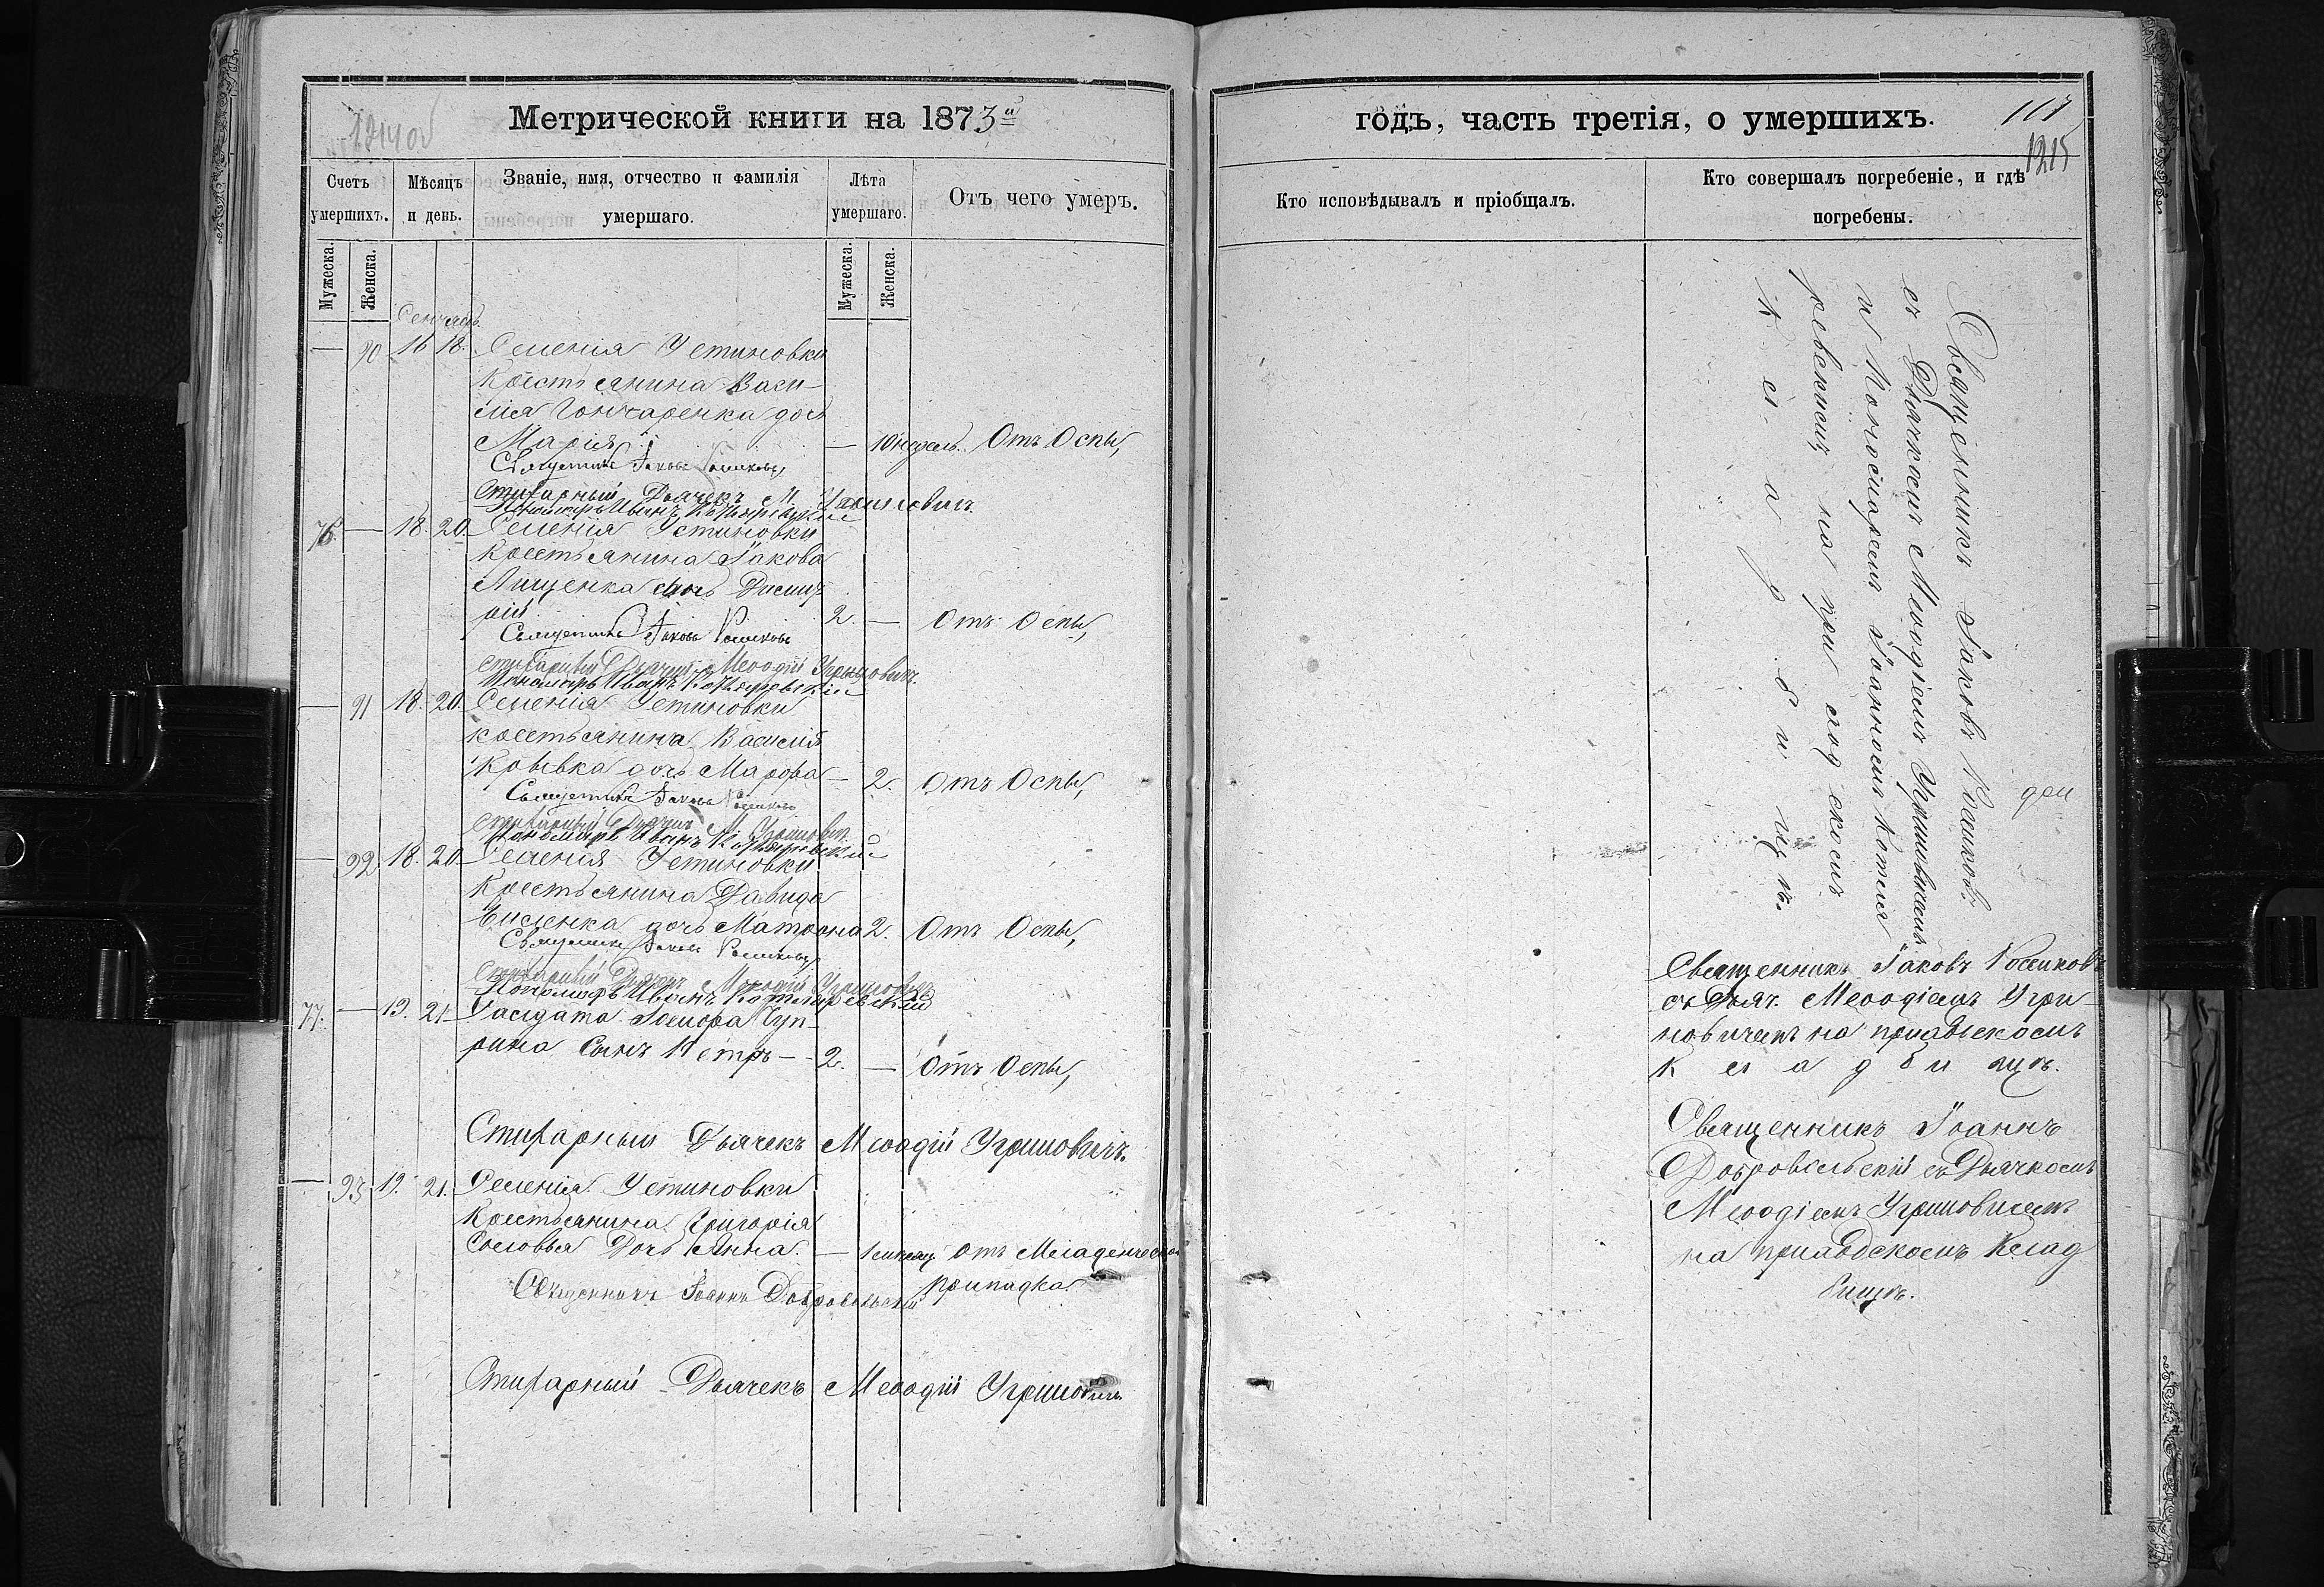 Метрической книги на 1873й
1214об
Счетъ умершихъ.
Мѣсяцъ и день.
Званіе, имя, отчество и фамилія умершаго.
Лѣта умершаго.
Отъ чего умеръ.
Мужеска.
Женска.
Мужеска.
Женска.
Сентябр.
— 90 16 18. Селенія Устиновки
Крестьянина Васи-
лія Гончаренка дочь
Марія — 10 недель. Отъ Оспы,
Священникъ Іаковъ
Стихарный Дьячекъ М. Угриновичъ
Пономарь Иванъ Котляревскій
76. — 18. 20. Селенія Устиновки
Крестьянина Іакова
Лищенка сынъ Димит
рій 2. — Отъ Оспы,
Священникъ Іаковъ
Стихарный Дьячекъ Меѳодій Угриновичъ.
Пономарь Иванъ Котляревскій
— 91 18. 20. Селенія Устиновки
крестьянина Василія
Крывка дочь Марфа — 2. Отъ Оспы,
Священникъ Іаковъ
Стихарный Дьячекъ М. Угриновичъ
Пономарь Иванъ Котляревскій
— 92. 18. 20 Селенія Устиновки
Крестьянина Давида
дочь Матрона 2. Отъ Оспы,
Священникъ Іаковъ
Стихарный Дьячекъ Меѳодій Угриновичъ
Пономарь Иванъ Котляревскій
77. — 19. 21. Салдата
сынъ Петръ — 2. — Отъ Оспы,
Стихарный Дьячекъ Меѳодій Угриновичъ.
— 93 19. 21. Селенія Устиновки
Крестьянина Григорія
Соловья Дочь Анна. — 1 месяц Отъ Младенческаго
припадка.
Священникъ Іоаннъ Добровольскій
Стихарный Дьячекъ Меѳодій Угриновичъ
годъ, часть третія, о умершихъ.
1215
Кто исповѣдывалъ и пріобщалъ.
Кто совершалъ погребеніе, и гдѣ погребены.
Священникъ Іаковъ
съ Дьячкомъ Меѳодіемъ Угриновичемъ
и Пономаремъ Іоанномъ Котля
ревскимъ на приходскомъ
кладбищѣ.
Священникъ Іаковъ
съ Дьяч. Меѳодіемъ Угри
новичемъ на приходскомъ
кладбищѣ.
Священникъ Іоаннъ
Добровольскій съ Дьячкомъ
Меѳодіемъ Угриновичемъ
на приходскомъ Клад
бищѣ.